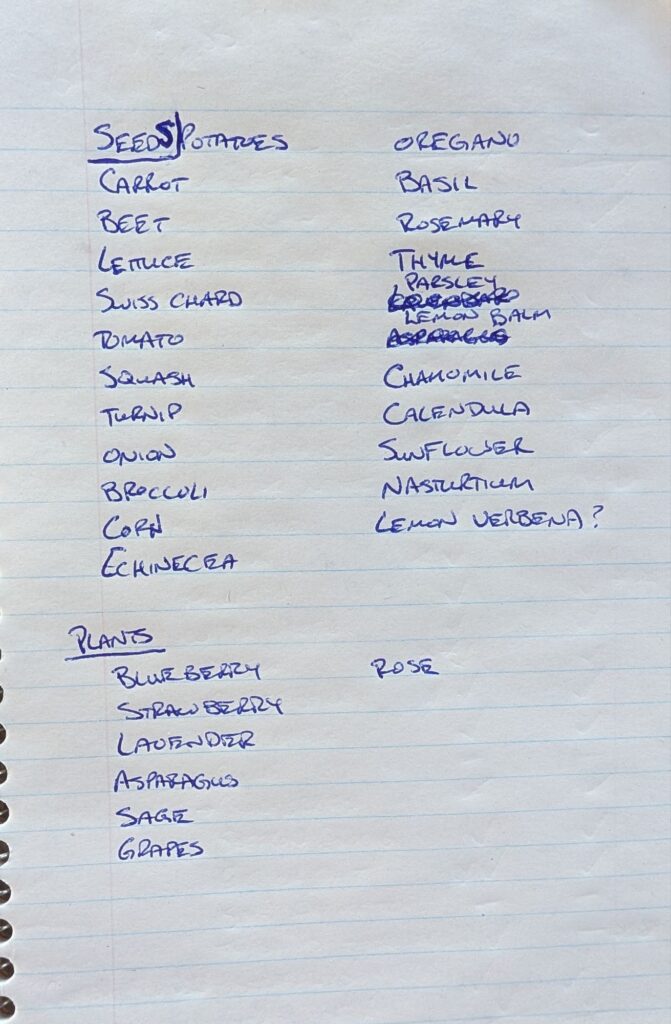 SEEDS|POTATOES
CARROT
BEET
LETTUCE
SWISS CHARD
TOMATO
SQUASH
TURNIP
ONION
BROCCOLI
CORN
ECHINECEA
OREGANO
BASIL
ROSEMARY
THYME
PARSLEY
LEMON BALM
CHAMOMILE
CALENDULA
SUNFLOWER
NASTURTIUM
LEMON VERBENA?
PLANTS
BLUEBERRY
STRAWBERRY
LAVENDER
ASPARAGUS
SAGE
GRAPES
ROSE